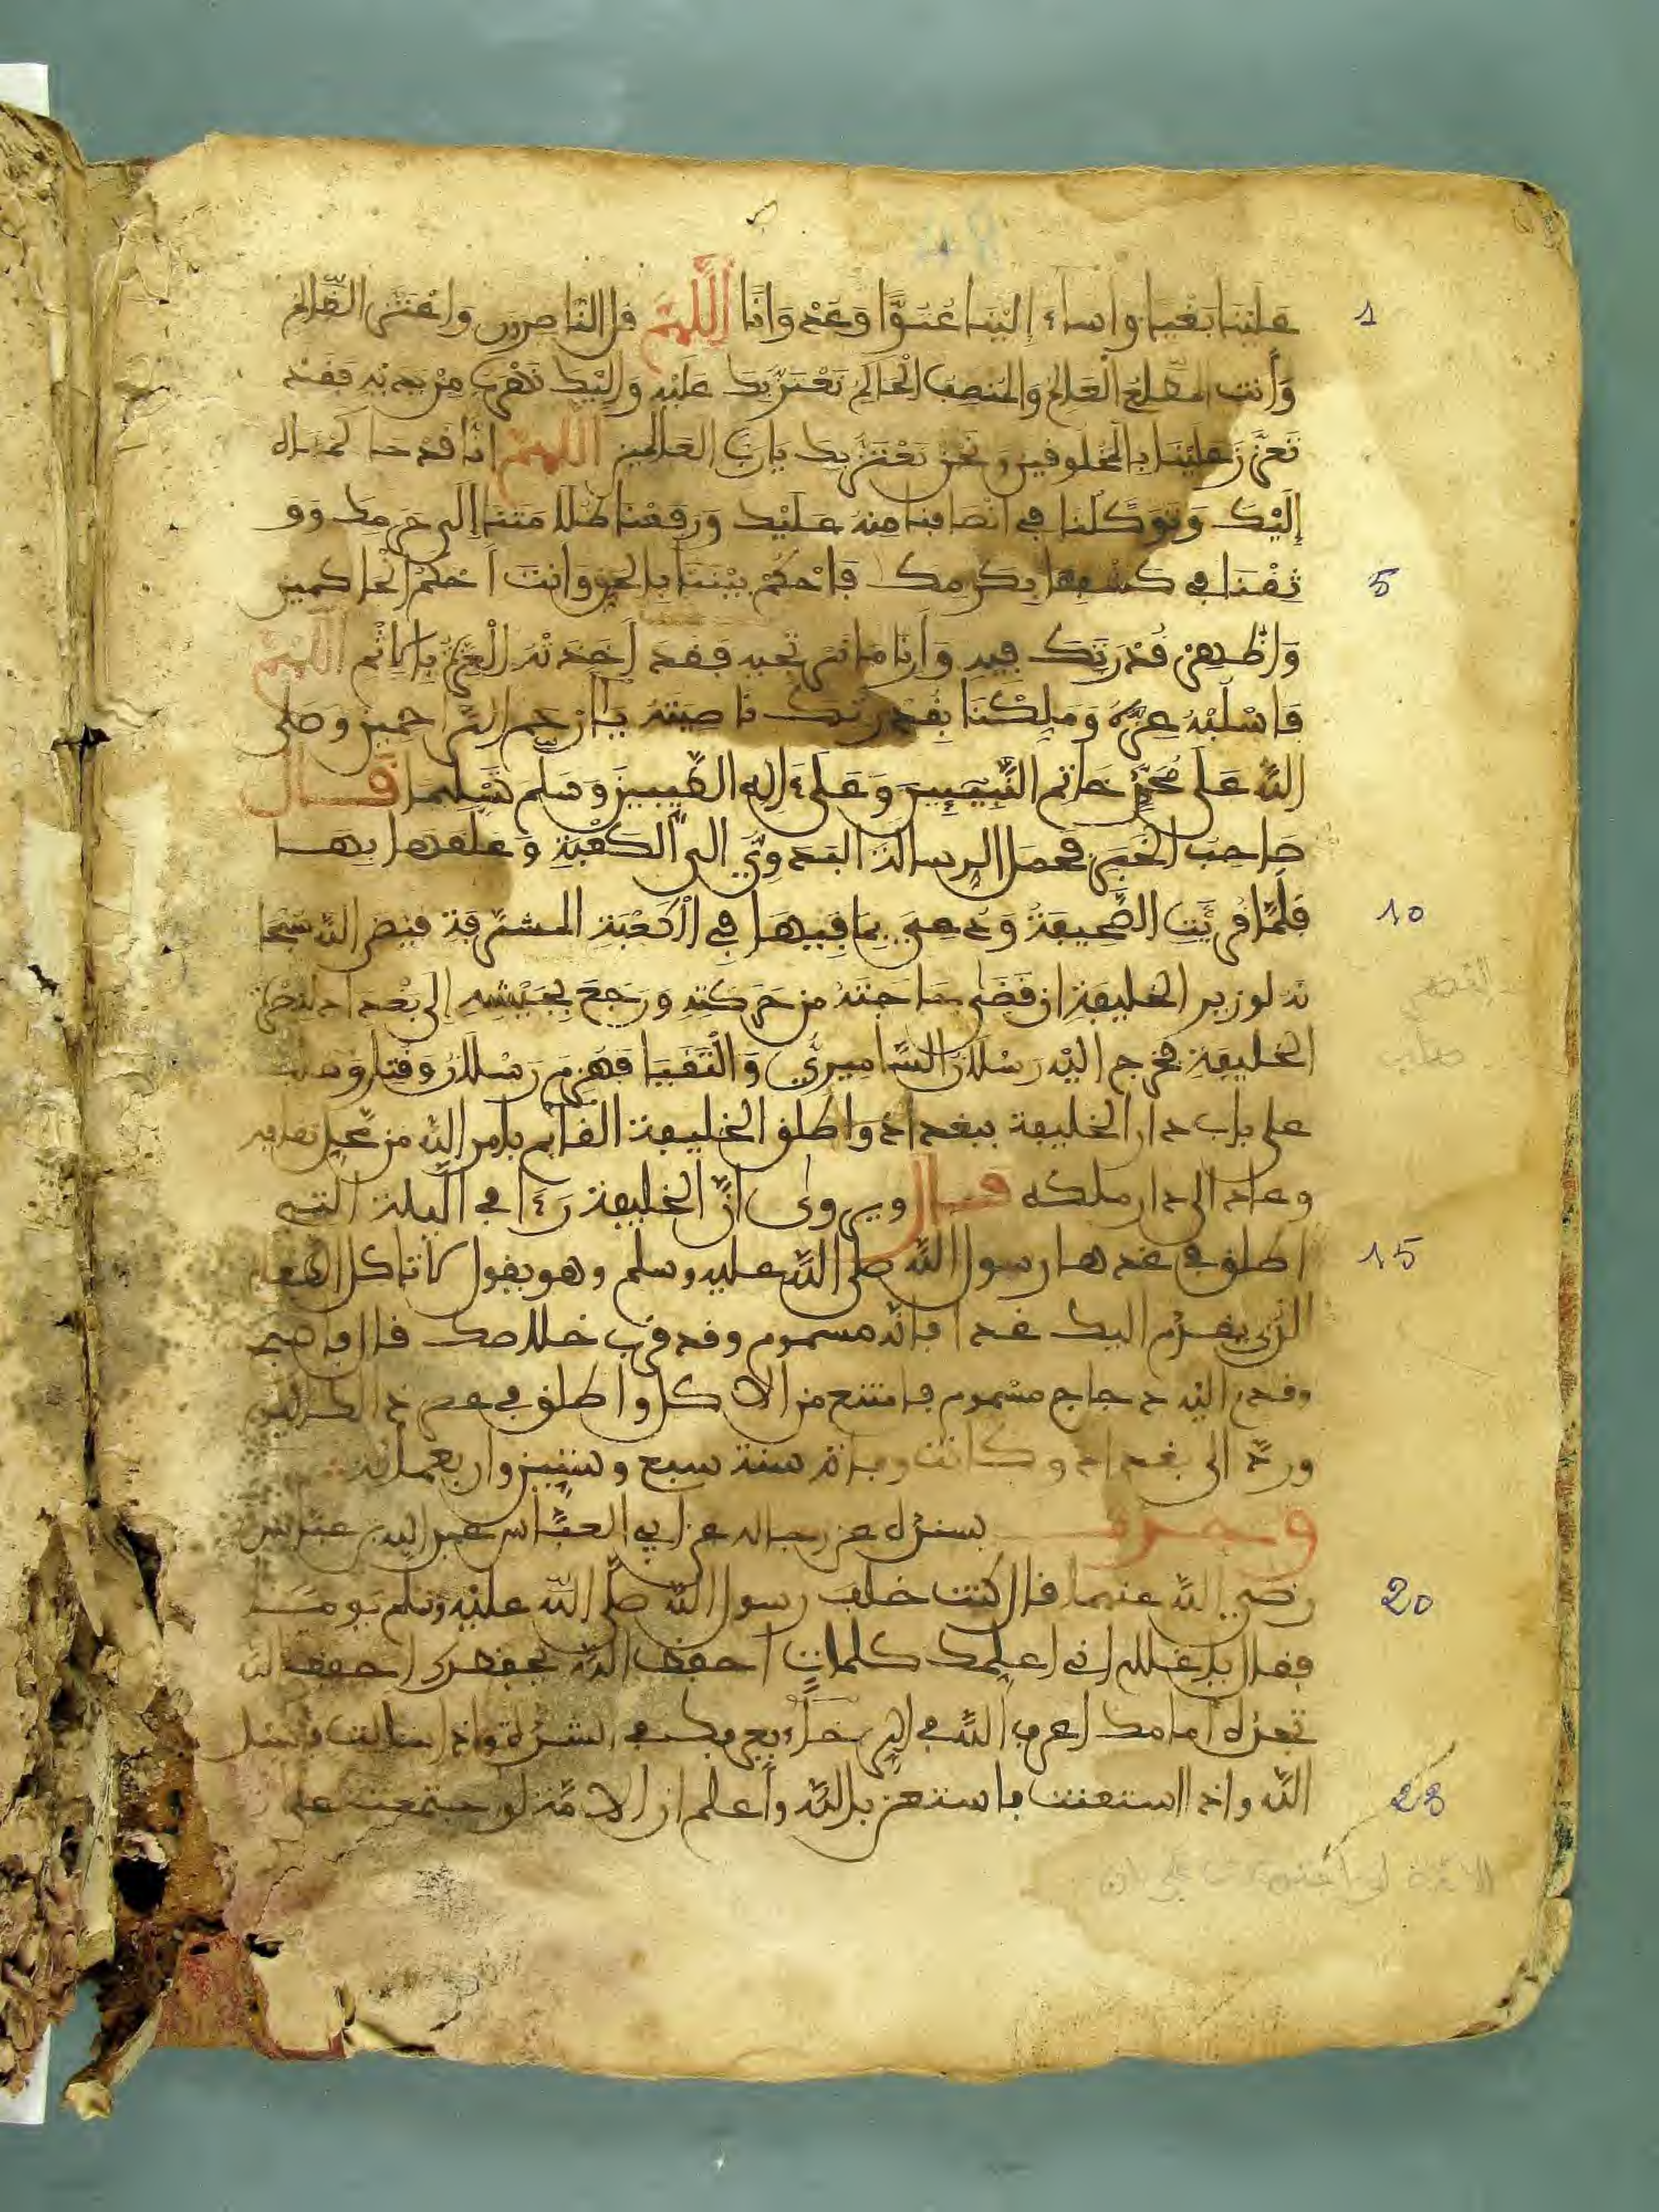 عَلَيْنَا بَغْيًا وأساءَ إِلَيْنَا عُتُوًّا وَعُدْوَانًا اللَّهُمَّ قل الناصرون واعْتَزَّ الظَّالم
وَأَنت المطلع الْعَالِمُ وَالمُنصِف الْحَاكِمُ نَعْتَزُّ بكَ عَلَيْهِ وَإِلَيْكَ نَهْرب مِنْ يديْهِ فَقَدْ
تَعَزَّزَ عَلَيْنَا بِالمَخْلوقين ونَحْنُ نَعْتَزُّ بك يَا رَبَّ العَالمين اللَّهُمَّ انا قد حَاكمناه
إِلَيْكَ وَتوَكَّلْنا في انْصَافِنا مِنْهُ عَلَيْك وَرَفَعْنَا ظُلَامَتَنَا إِلَى حَرمِكَ وَوَ
ثِقْنَا في كَشْفِهَا بِكَرَمِكَ فَاحْكُمْ بيْنَنَا بِالحَقِّ وَأنتَ أَحْكمُ الحَاكمين
وَاظْهِرْ قُدْرَتَكَ فِيهِ وَأَرِنَا مَا نَرْتجيه فَقد أَخَذَتْهُ الْعِزَّةُ بِالاِثْمِ اللَّهُمَّ
فَاسْلُبْهُ عِزَّهُ وَمَلِّكْنَا بِقُدْرَتِك نَاصِيَتَهُ يَا أَرْحَم الرَّاحِمين وَصَلى
اللَّه عَلَى مُحَمَّدٍ خَاتمِ النَّبِيـِٔينَ وَعَلَى ءَالِهِ الطَّيِّبِينَ وَسَلَّم تَسْلِيمَا قَالَ
صَاحِبُ الخَبَر فحمل الرسالة البَدَوِيُّ إلى الْكَعْبَةِ وَعَلقهَا بِهَا
فَلَمَّا قُرِئَتِ الصَّحِيفَةُ وَدُعِيَ بِمَا فِيهَا فِي الْكَعْبَةِ المشَرَّفَة قيض اللَّه سُبْحَا
نَهُ لوزير الخليفَةِ ان قَضَى حَاجَتَهُ من حَرَكَتِهِ وَرَجَعَ بِجَيْشِهِ إِلَى بَغْدَاد لنصْرَة
الخليفَةِ فخرج إليْه رَسْلَان السَّامِيرِيّ وَالْتَقَيَا فَهُزِمَ رَسْلَان وَقتل وَصلب
على باب دار الخليفة ببغداذ واطلق الخليفة القائم بامر اللَّه من
وعاد الى دار ملكه قال ويروى انَّ الخليفة رَءَا في الليلة التي
اطلق في غدها رسول اللَّه صلى اللَّه عليه وسلم وهو يقول لا تاكل الطعام
الذي يقدم اليك غدا فإنه مسموم وقد قرب خلاصك قال فاصبح
وقدم اليْهِ دجاج مسْموم فامتنع من الاكل واطلق في عصر ذالك اليوم
وردَّ الى بغداد وكانت وفاته سنة سبع وستين واربعمائة
وحدث بسنده عن رجاله عن أبي العبَّاس عبد الله بن عباس
رَضي اللَّه عنهما قال كنت خلف رسول اللَّه صلَّى اللَّه عليْه وَسَلم يَومًا
فقال يا غلام اني اعلمك كلماتٍ احفظ اللَّه يحفظك احفظ الله
تجده أمامك اعرف اللَّه في الرخاءِ يعرفك في الشدة واذا سالت فاسْئل
اللَّه واذا استعنت فاستعن باللَّه واعلم ان الامَّة لو اجتمعت على
الامة لو اجتمعت على ان
1
5
10
15
20
23